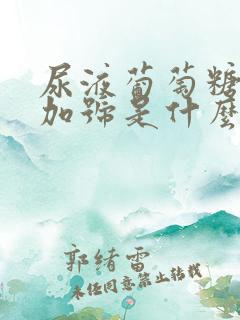 尿液葡萄糖
加號是什麼
郭緒雷
未经同意禁止转载